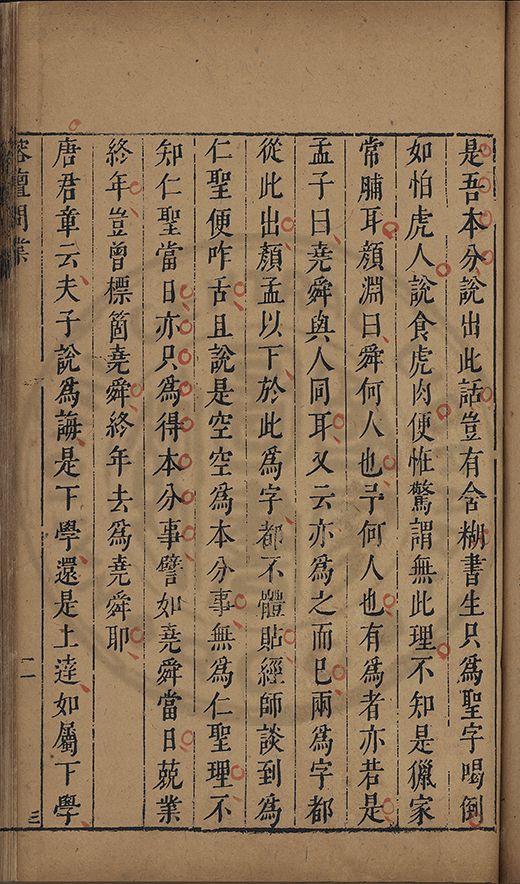 是吾本分說出此話豈有含糊書生只爲聖字喝倒
如怕虎人說食虎肉便恠驚謂無此理不知是獵家
常脯耳顏淵曰舜何人也予何人也有爲者亦若是
孟子曰堯舜與人同耳又云亦爲之而已兩爲字都
從此出顏孟以下於此爲字都不體貼經師談到爲
仁聖便咋舌且說是空空爲本分事無爲仁聖理不
知仁聖當日亦只爲得本分事譬如堯舜當日兢業
終年豈曾標箇堯舜終年去爲堯舜耶
唐君章云夫子說爲誨是下學還是上達如屬下學
榕壇問業
二
三